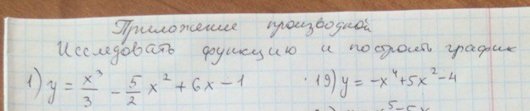 Приложение производной
Исследовать функцию и построить график
1) y = x³/3 - 5/2 x² + 6x - 1 19) y = -x⁴ + 5x² - 4